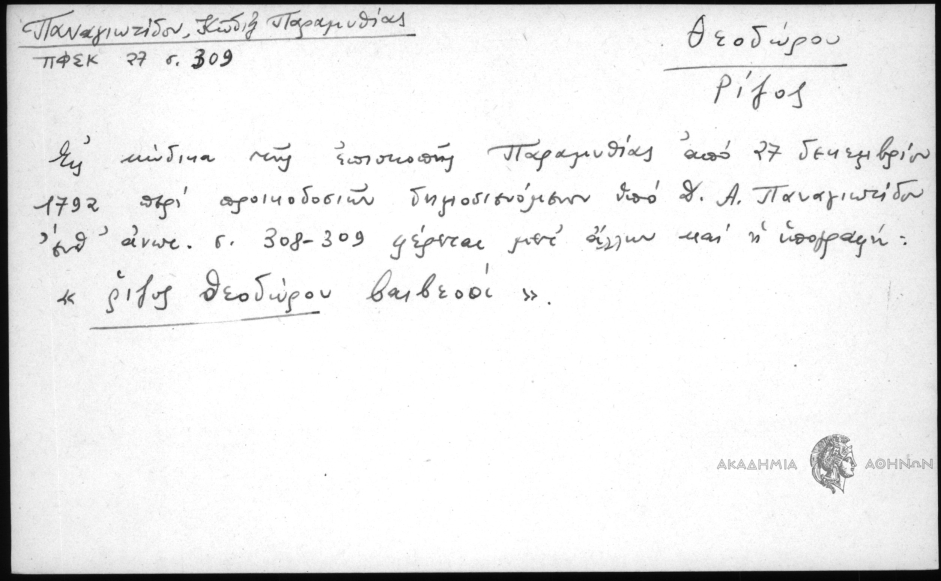 Παναγιωτίδου, Κώδιξ Παραμυθίας
ΠΦΕΚ 27 σ. 309
Θεοδώρου
Ρίζος
Εἰς κώδικα τῆς ἐπισκοπῆς Παραμυθίας ἀπό 27 δεκεμβρίου
1792 περί προικοδοσιῶν δημοσιευόμενον ὑπό Δ. Α. Παναγιωτίδου
ἔνθ' ἀνωτ. σ. 308-309 φέρεται μετ' ἄλλων καί ἡ ὑπογραφή:
« ῥίζος θεοδώρου βαιβεσσί ».
ΑΚΑΔΗΜΙΑ ΑΘΗΝΩΝ